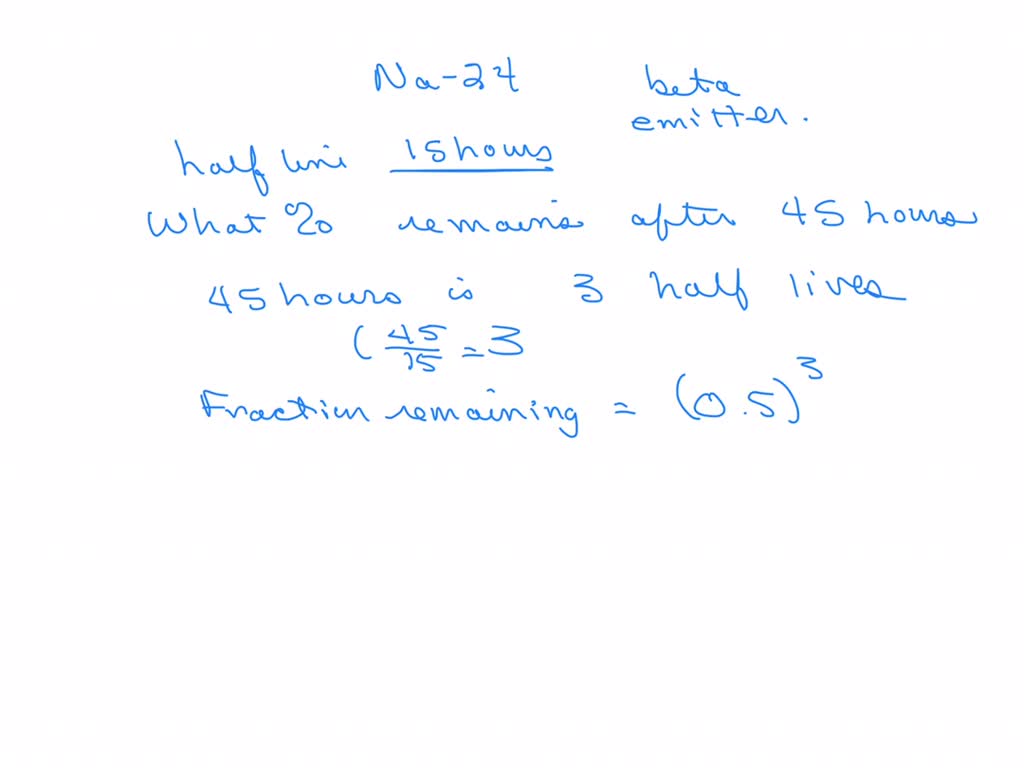 Na-24 beta
emitter.
half line 15 hours
What % remains after 45 hours
45 hours is 3 half lives
( 45/15 = 3
Fraction remaining = (0.5)^3